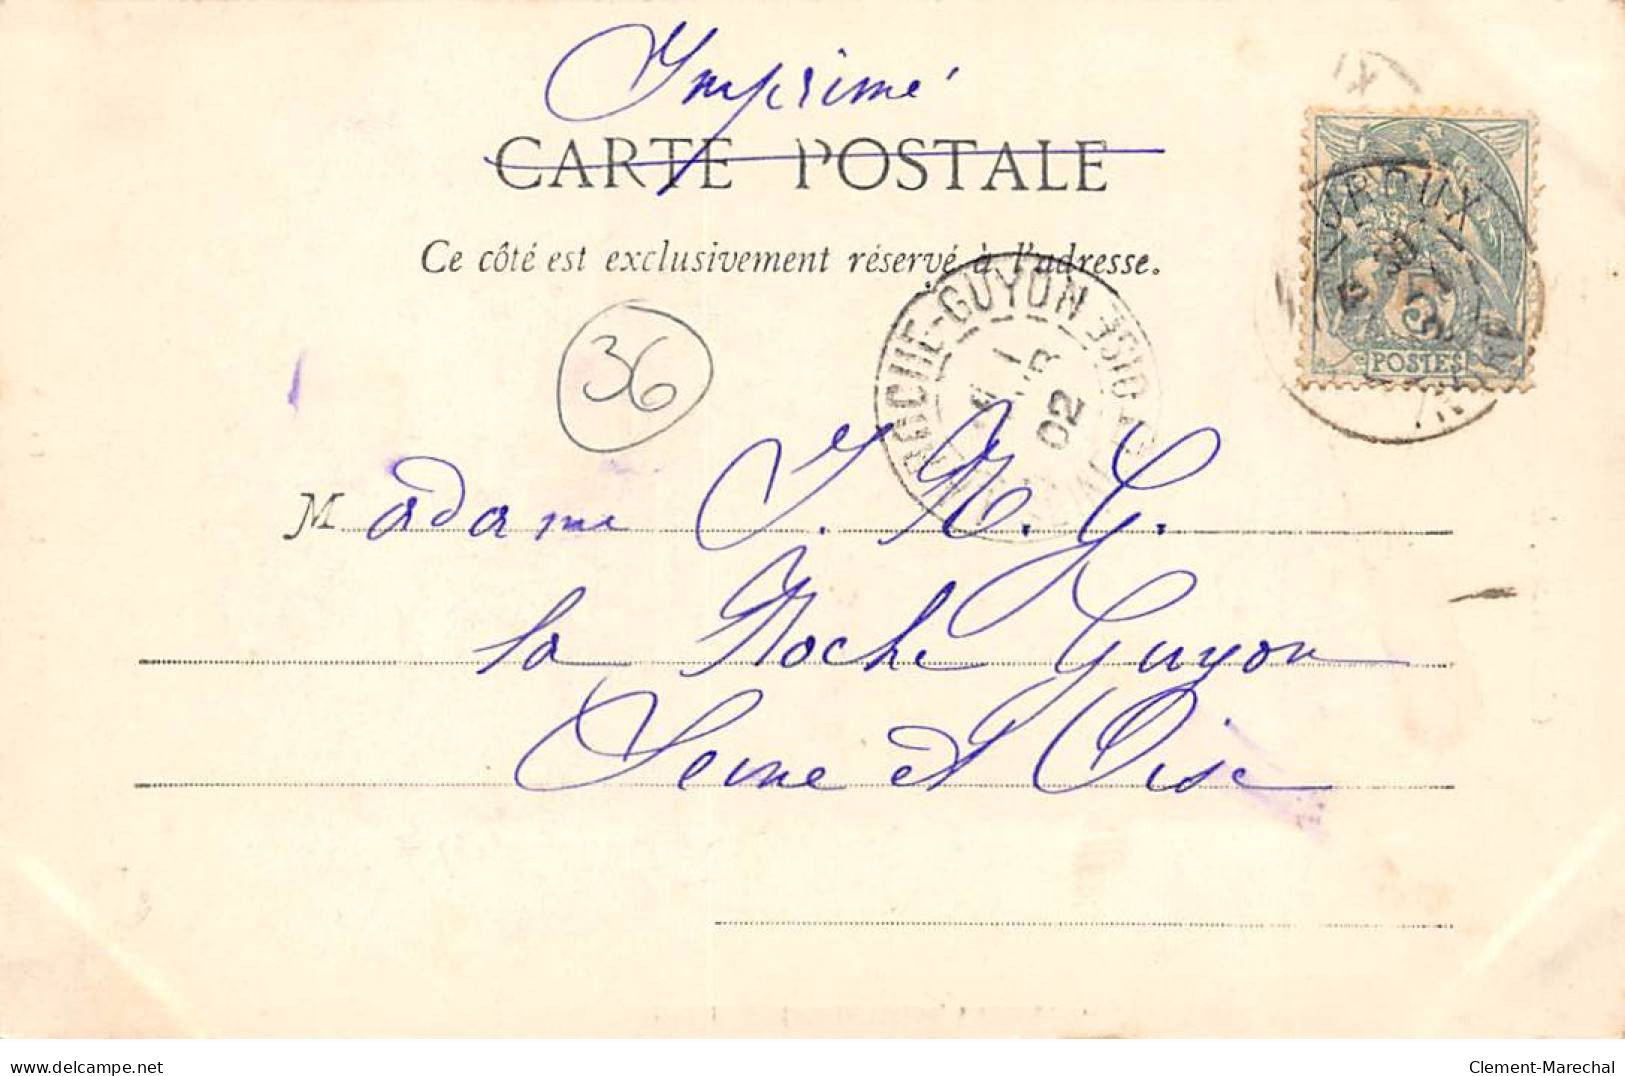 Imprimé
CARTE POSTALE
Ce côté est exclusivement réservé à l'adresse.
36
ROCHE-GUYON
OISE
02
5
POSTES
Madame J. R. G.
la Roche Guyon
Seine et Oise
delcampe.net
Clement-Marechal